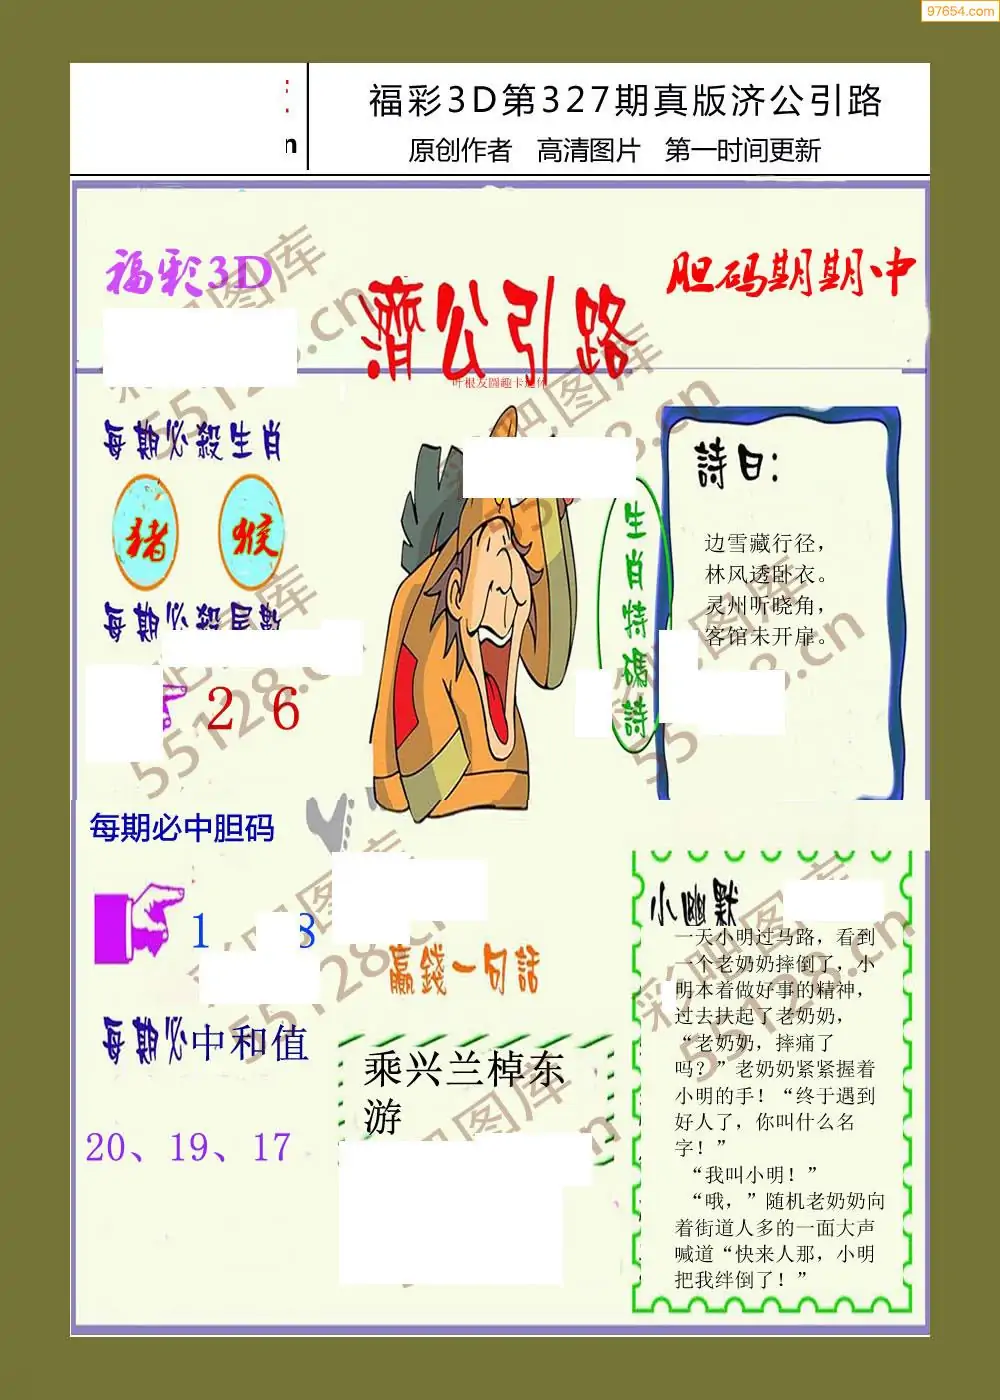 97654.com
n
福彩3D第327期真版济公引路
原创作者 高清图片 第一时间更新
福彩3D
濟公引路
胆码期期中
叶根友圆趣卡通体
每期必殺生肖
猪 猴
每期必殺尾數
2 6
生肖特碼詩
詩曰:
边雪藏行径,
林风透卧衣。
灵州听晓角,
客馆未开扉。
每期必中胆码
1 8
每期必中和值
20、19、17
贏錢一句話
乘兴兰棹东
游
小幽默
一天小明过马路，看到
一个老奶奶摔倒了，小
明本着做好事的精神，
过去扶起了老奶奶，
“老奶奶，摔痛了
吗？”老奶奶紧紧握着
小明的手！“终于遇到
好人了，你叫什么名
字！”
“我叫小明！”
“哦，”随机老奶奶向
着街道人多的一面大声
喊道“快来人那，小明
把我绊倒了！”
彩吧图库
55128.cn